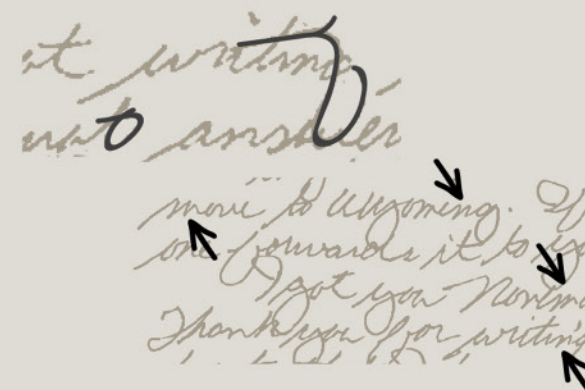 at writing
not answer
move to Wyoming. If
one forwards it to yo
I got you Novem
Thank you for writing